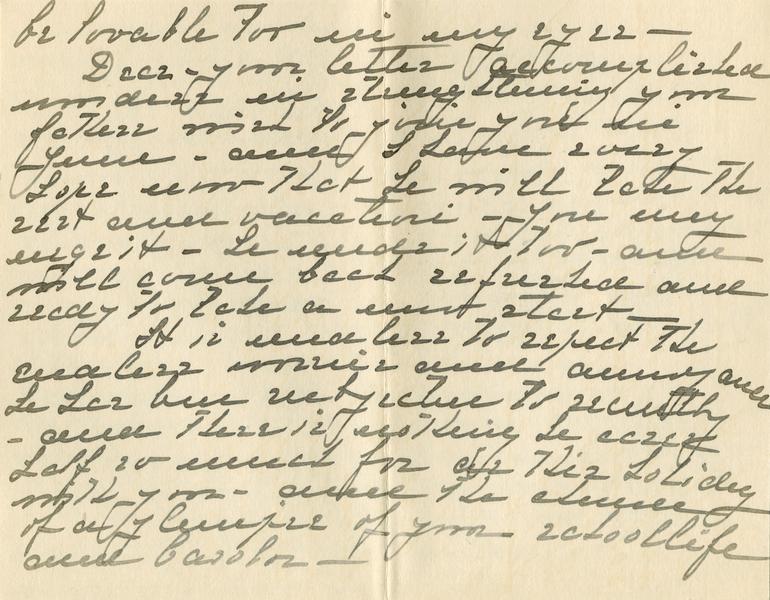 be lovable too in my eyes —
Dear - your letter accomplished
wonders in strengthening your
father's wish to join you in
June - and I have every
hope now that he will take the
rest and vacation - you may
urge it - he needs it too - and
will come back refreshed and
ready to take a new start —
It is needless to repeat the
endless worries and annoyances
he has been subjected to recently
- and there is nothing he cares
half so much for as this holiday
with you - and the chance
of a glimpse of your school life
and